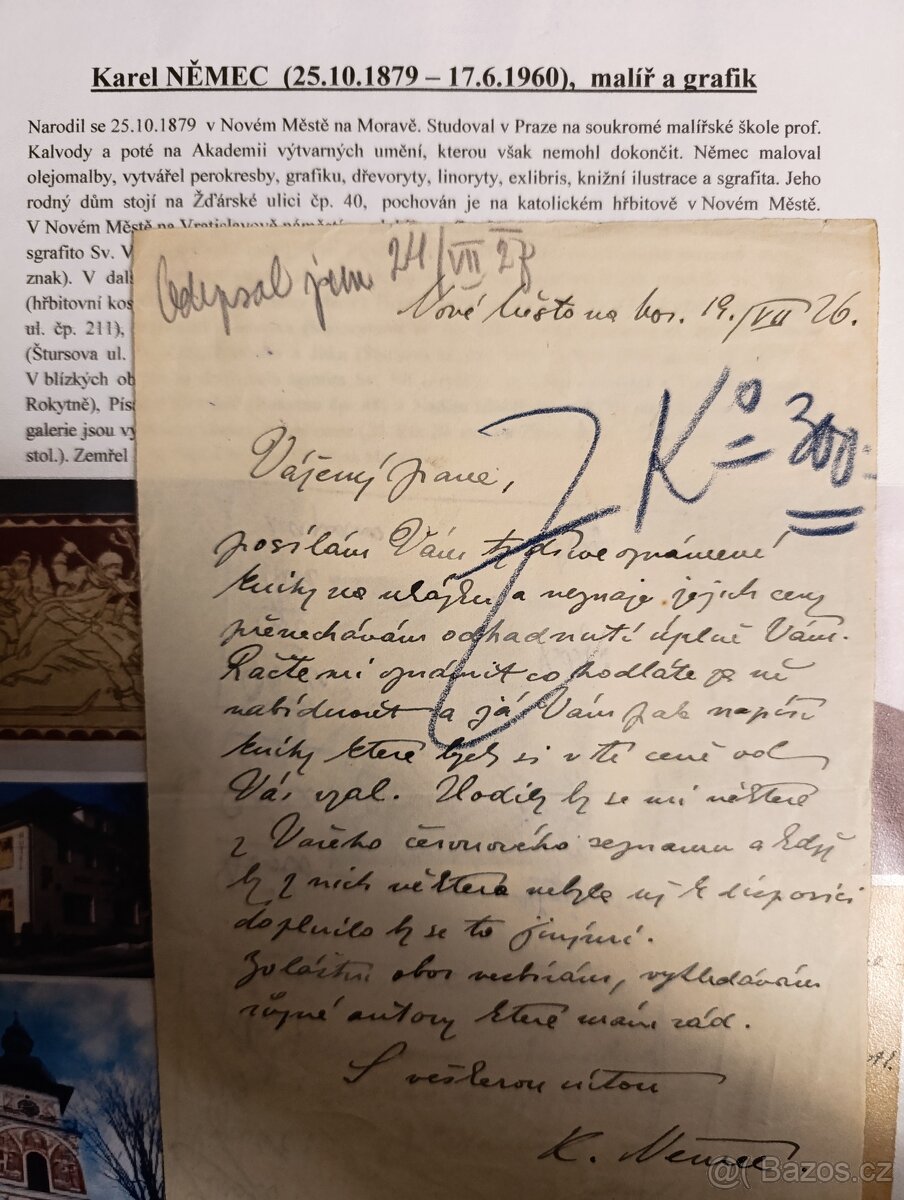 Karel NĚMEC (25.10.1879 – 17.6.1960), malíř a grafik
Narodil se 25.10.1879 v Novém Městě na Moravě. Studoval v Praze na soukromé malířské škole prof.
Kalvody a poté na Akademii výtvarných umění, kterou však nemohl dokončit. Němec maloval
olejomalby, vytvářel perokresby, grafiku, dřevoryty, linoryty, exlibris, knižní ilustrace a sgrafita. Jeho
rodný dům stojí na Žďárské ulici čp. 40, pochován je na katolickém hřbitově v Novém Městě.
V Novém Městě na Vratislavově
sgrafito Sv. V
znak). V dal
(hřbitovní kos
ul. čp. 211),
(Štursova ul.
V blízkých ob
Rokytně), Pís
galerie jsou vy
stol.). Zemřel
Odepsal jsem 24/VII 27
Nové Město na Mor. 19./VII 26.
Kº= 300.-
Vážený pane,
posílám Vám ty dříve oznámené
knihy na ukázku a neznaje jejich ceny
přenechávám odhadnutí úplně Vám.
Račte mi oznámit co hodláte za ně
nabídnout a já Vám pak napíši
knihy které bych si v té ceně od
Vás vzal. Hodily by se mi některé
z Vašeho červnového seznamu a když
by z nich některá nebyla už k disposici
doplnilo by se to jinými.
Zvláštní obor nesbírám, vyhledávám
různé autory které mám rád.
S veškerou úctou
K. Němec.
@ Bazos.cz